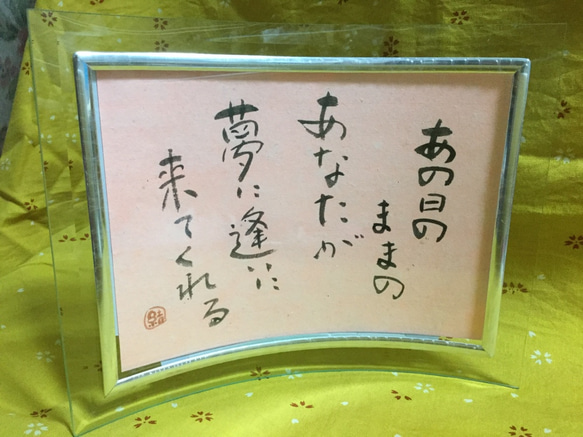 あの日の
ままの
あなたが
夢に逢いに
来てくれる